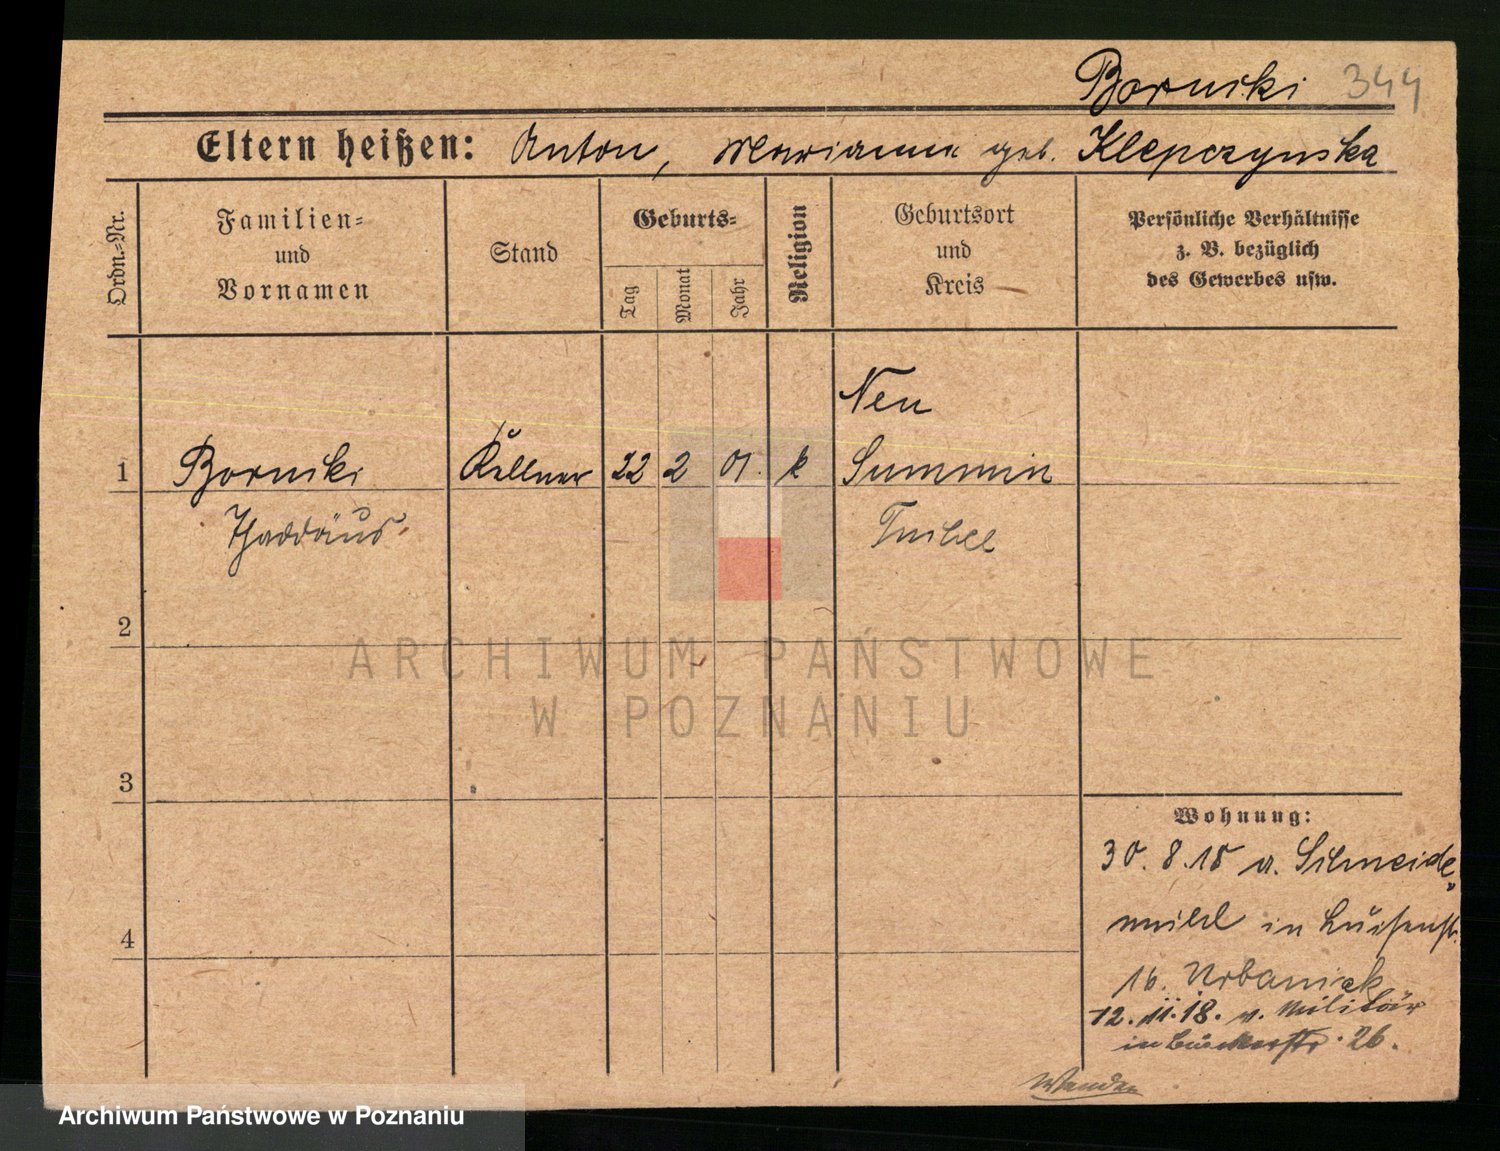 Borucki 344
Eltern heißen: Anton, Marianna geb. Klepczynska
Ordn.-Nr.
Familien-
und
Vornamen
Stand
Geburts-
Tag
Monat
Jahr
Religion
Geburtsort
und
Kreis
Persönliche Verhältnisse
z. B. bezüglich
des Gewerbes usw.
Neu
1 Borucki Kellner 22 2 01. k Summin
Thaddäus Tuchel
2
ARCHIWUM PAŃSTWOWE
W POZNANIU
3
Wohnung:
30.8.18 a. Schneide-
mühl in Luisenstr.
16. Urbaniak
4
12.11.18. v. Militär
in 26.
Wenden
Archiwum Państwowe w Poznaniu